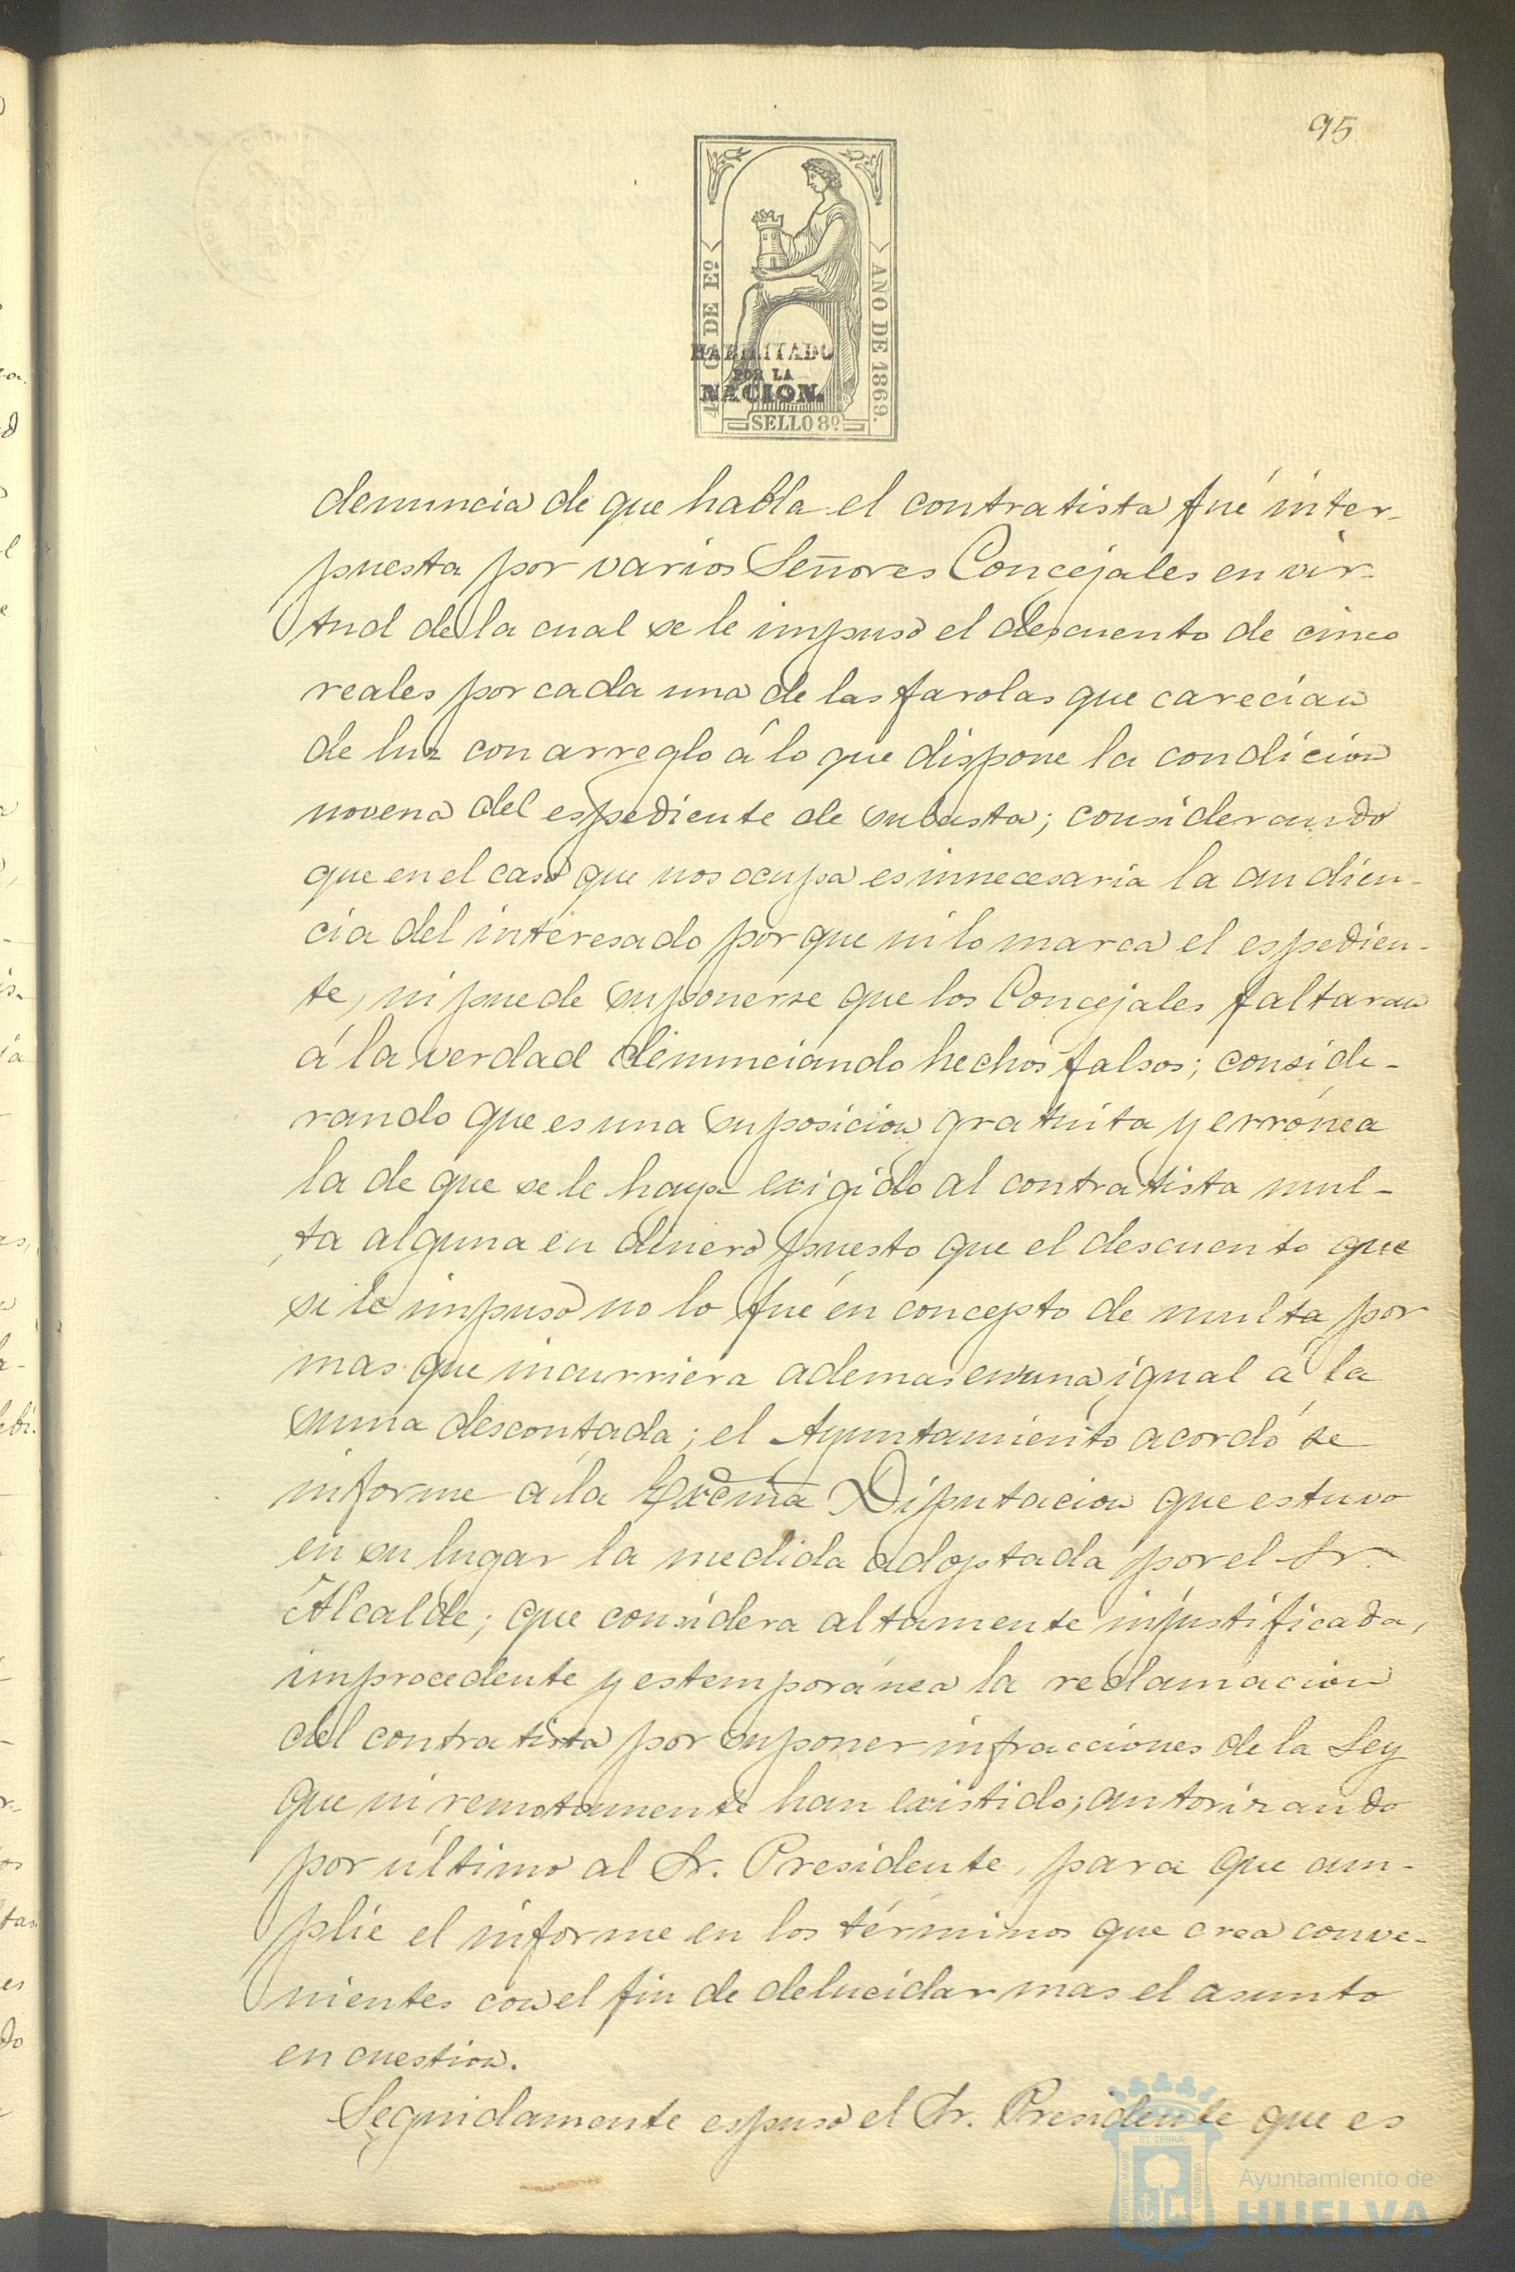 95
4 Cs DE Eº
AÑO DE 1869.
HABILITADO
POR LA
NACION.
SELLO 8º
denuncia de que habla el contratista fué inter-
puesta por varios Señores Concejales en vir-
tud de la cual se le impuso el descuento de cinco
reales por cada una de las farolas que carecian
de luz con arreglo á lo que dispone la condicion
novena del espediente de subasta; considerando
que en el caso que nos ocupa es innecesaria la audien-
cia del interesado por que ni lo marca el espedien-
te, ni puede suponerse que los Concejales faltaran
á la verdad denunciando hechos falsos; conside-
rando que es una suposicion gratuita y errónea
la de que se le haya exigido al contratista mul-
ta alguna en dinero puesto que el descuento que
se le impuso no lo fué en concepto de multa por
mas que incurriera ademas en una igual á la
suma descontada; el Ayuntamiento acordó se
informe á la Excma Diputacion que estuvo
en su lugar la medida adoptada por el Sr.
Alcalde; que considera altamente injustificada,
improcedente y estemporánea la reclamacion
del contratista por suponer infracciones de la Ley
que ni remotamente han existido; autorizando
por último al Sr. Presidente, para que am-
plie el informe en los términos que crea conve-
nientes con el fin de delucidar mas el asunto
en cuestion.
Seguidamente espuso el Sr. Presidente que es
PORTUS MARIS
ET TERRÆ
CUSTODIA
Ayuntamiento de
HUELVA